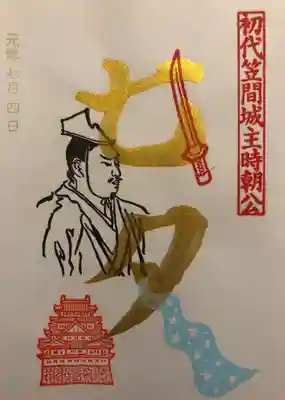 初代笠間城主時朝公
七夕
元年 七月四日